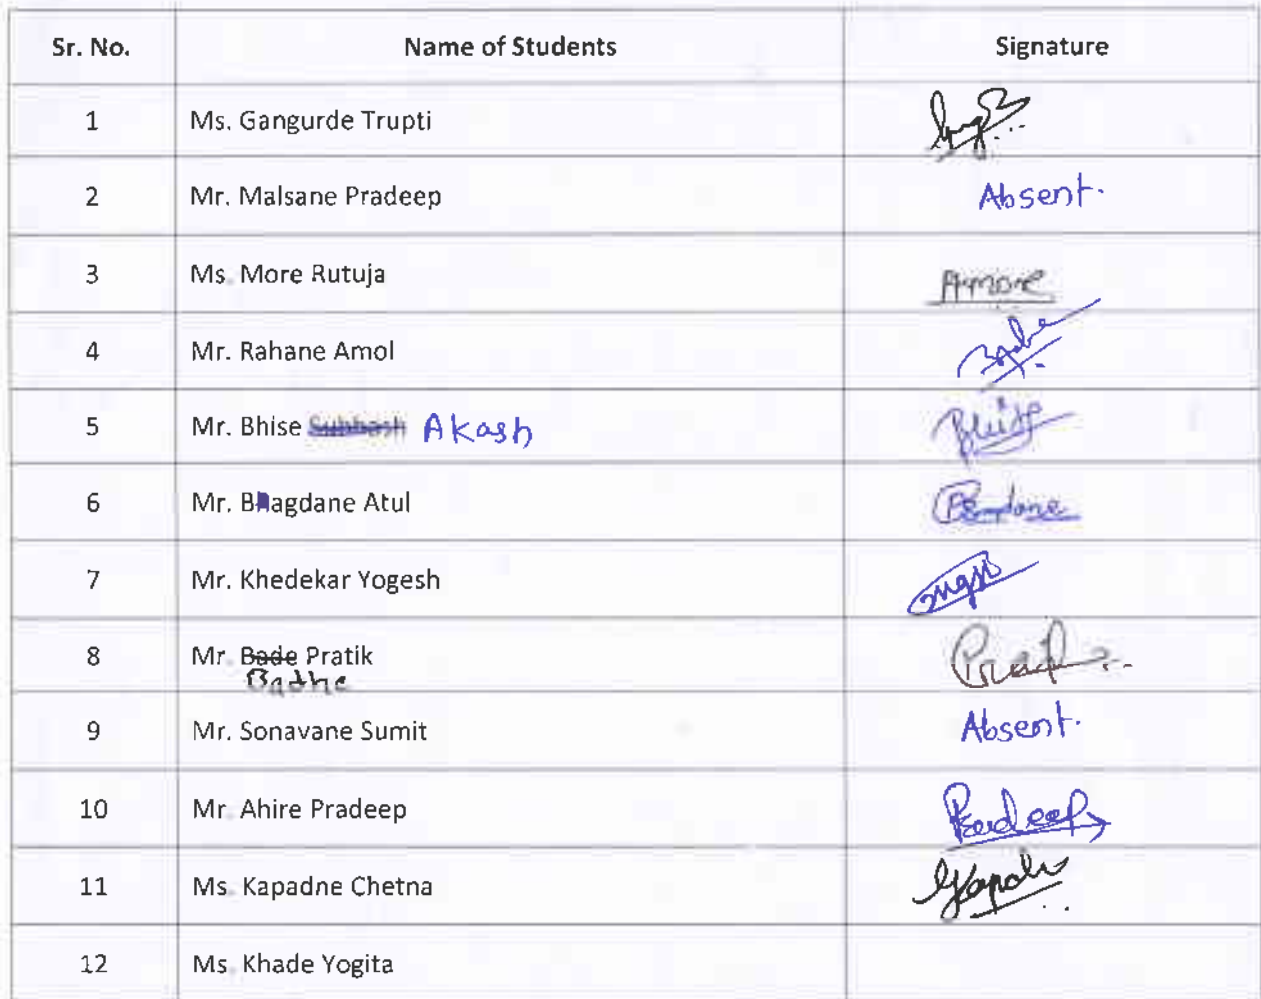 Sr. No. Name of Students Signature
1 Ms. Gangurde Trupti
2 Mr. Malsane Pradeep Absent.
3 Ms. More Rutuja Amore
4 Mr. Rahane Amol
5 Mr. Bhise Subhash Akash
6 Mr. Bhagdane Atul
7 Mr. Khedekar Yogesh
8 Mr. Bade Pratik
Badhe
9 Mr. Sonavane Sumit Absent.
10 Mr. Ahire Pradeep Pradeep
11 Ms. Kapadne Chetna
12 Ms. Khade Yogita